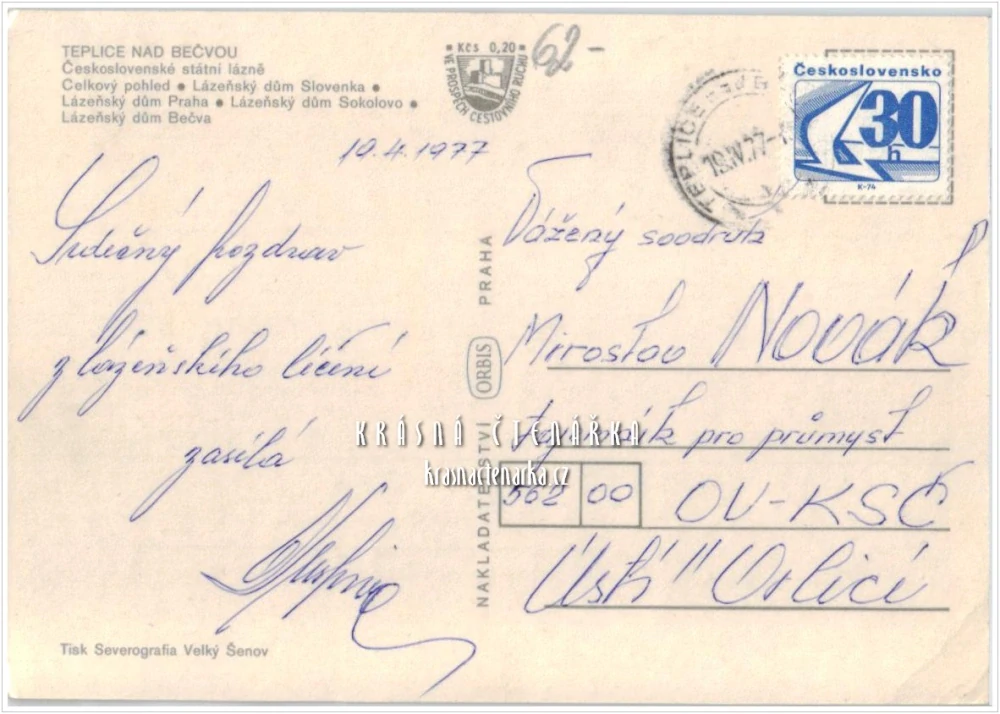 TEPLICE NAD BEČVOU
Československé státní lázně
Celkový pohled • Lázeňský dům Slovenka •
Lázeňský dům Praha • Lázeňský dům Sokolovo •
Lázeňský dům Bečva
Kčs 0,20
VE PROSPĚCH CESTOVNÍHO RUCHU
62-
TEPLICE
19.IV.77
Československo
30
h
K-74
19.4.1977
Srdečný pozdrav
z lázeňského léčení
zasílá
NAKLADATELSTVÍ ORBIS PRAHA
Vážený soudruh
Miroslav Novák
tajemník pro průmysl
562 00 OV-KSČ
Ústí "Orlicí
KRÁSNÁ ČTENÁŘKA
krasnactenarka.cz
Tisk Severografia Velký Šenov